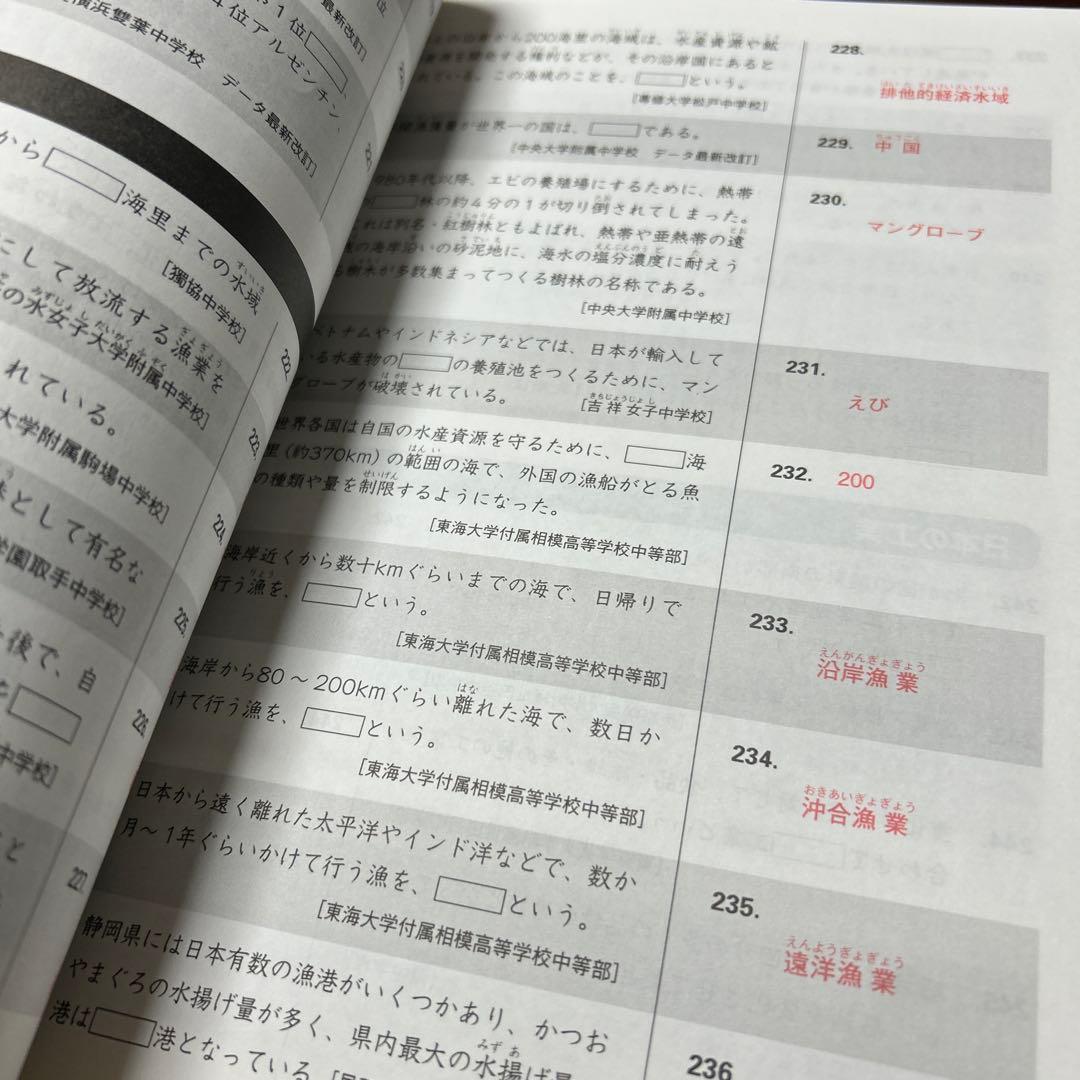 から□海里までの水域
[獨協中学校]
にして放流する漁業を
の水女子大学附属中学校]
れている。
大学附属駒場中学校]
味として有名な
学園取手中学校]
後で、自
□
中学校]
1位□
4位アルゼンチン、
横浜雙葉中学校　データ最新改訂]
最新改訂]
位
222.
223.
224.
225.
226.
227.
から200海里の海域は、水産資源や鉱
を開発する権利などが、その沿岸国にあると
れている。この海域のことを、□という。
[専修大学松戸中学校]
228.
排他的経済水域
量が世界一の国は、□である。
[中央大学附属中学校　データ最新改訂]
229. 中国
980年代以降、エビの養殖場にするために、熱帯
□林の約4分の1が切り倒されてしまった。
これは別名・紅樹林ともよばれ、熱帯や亜熱帯の遠
の海岸沿いの砂泥地に、海水の塩分濃度に耐えう
る樹木が多数集まってつくる樹林の名称である。
[中央大学附属中学校]
230.
マングローブ
トナムやインドネシアなどでは、日本が輸入して
いる水産物の□の養殖池をつくるために、マン
グローブが破壊されている。
[吉祥女子中学校]
231.
えび
世界各国は自国の水産資源を守るために、□海
里（約370km）の範囲の海で、外国の漁船がとる魚
の種類や量を制限するようになった。
[東海大学付属相模高等学校中等部]
232. 200
海岸近くから数十kmぐらいまでの海で、日帰りで
行う漁を、□という。
[東海大学付属相模高等学校中等部]
233.
えんがんぎょぎょう
沿岸漁業
海岸から80～200kmぐらい離れた海で、数日か
けて行う漁を、□という。
[東海大学付属相模高等学校中等部]
234.
おきあいぎょぎょう
沖合漁業
日本から遠く離れた太平洋やインド洋などで、数か
月～1年ぐらいかけて行う漁を、□という。
[東海大学付属相模高等学校中等部]
235.
えんようぎょぎょう
遠洋漁業
静岡県には日本有数の漁港がいくつかあり、かつお
やまぐろの水揚げ量が多く、県内最大の水揚げ量
港は□港となっている。
236